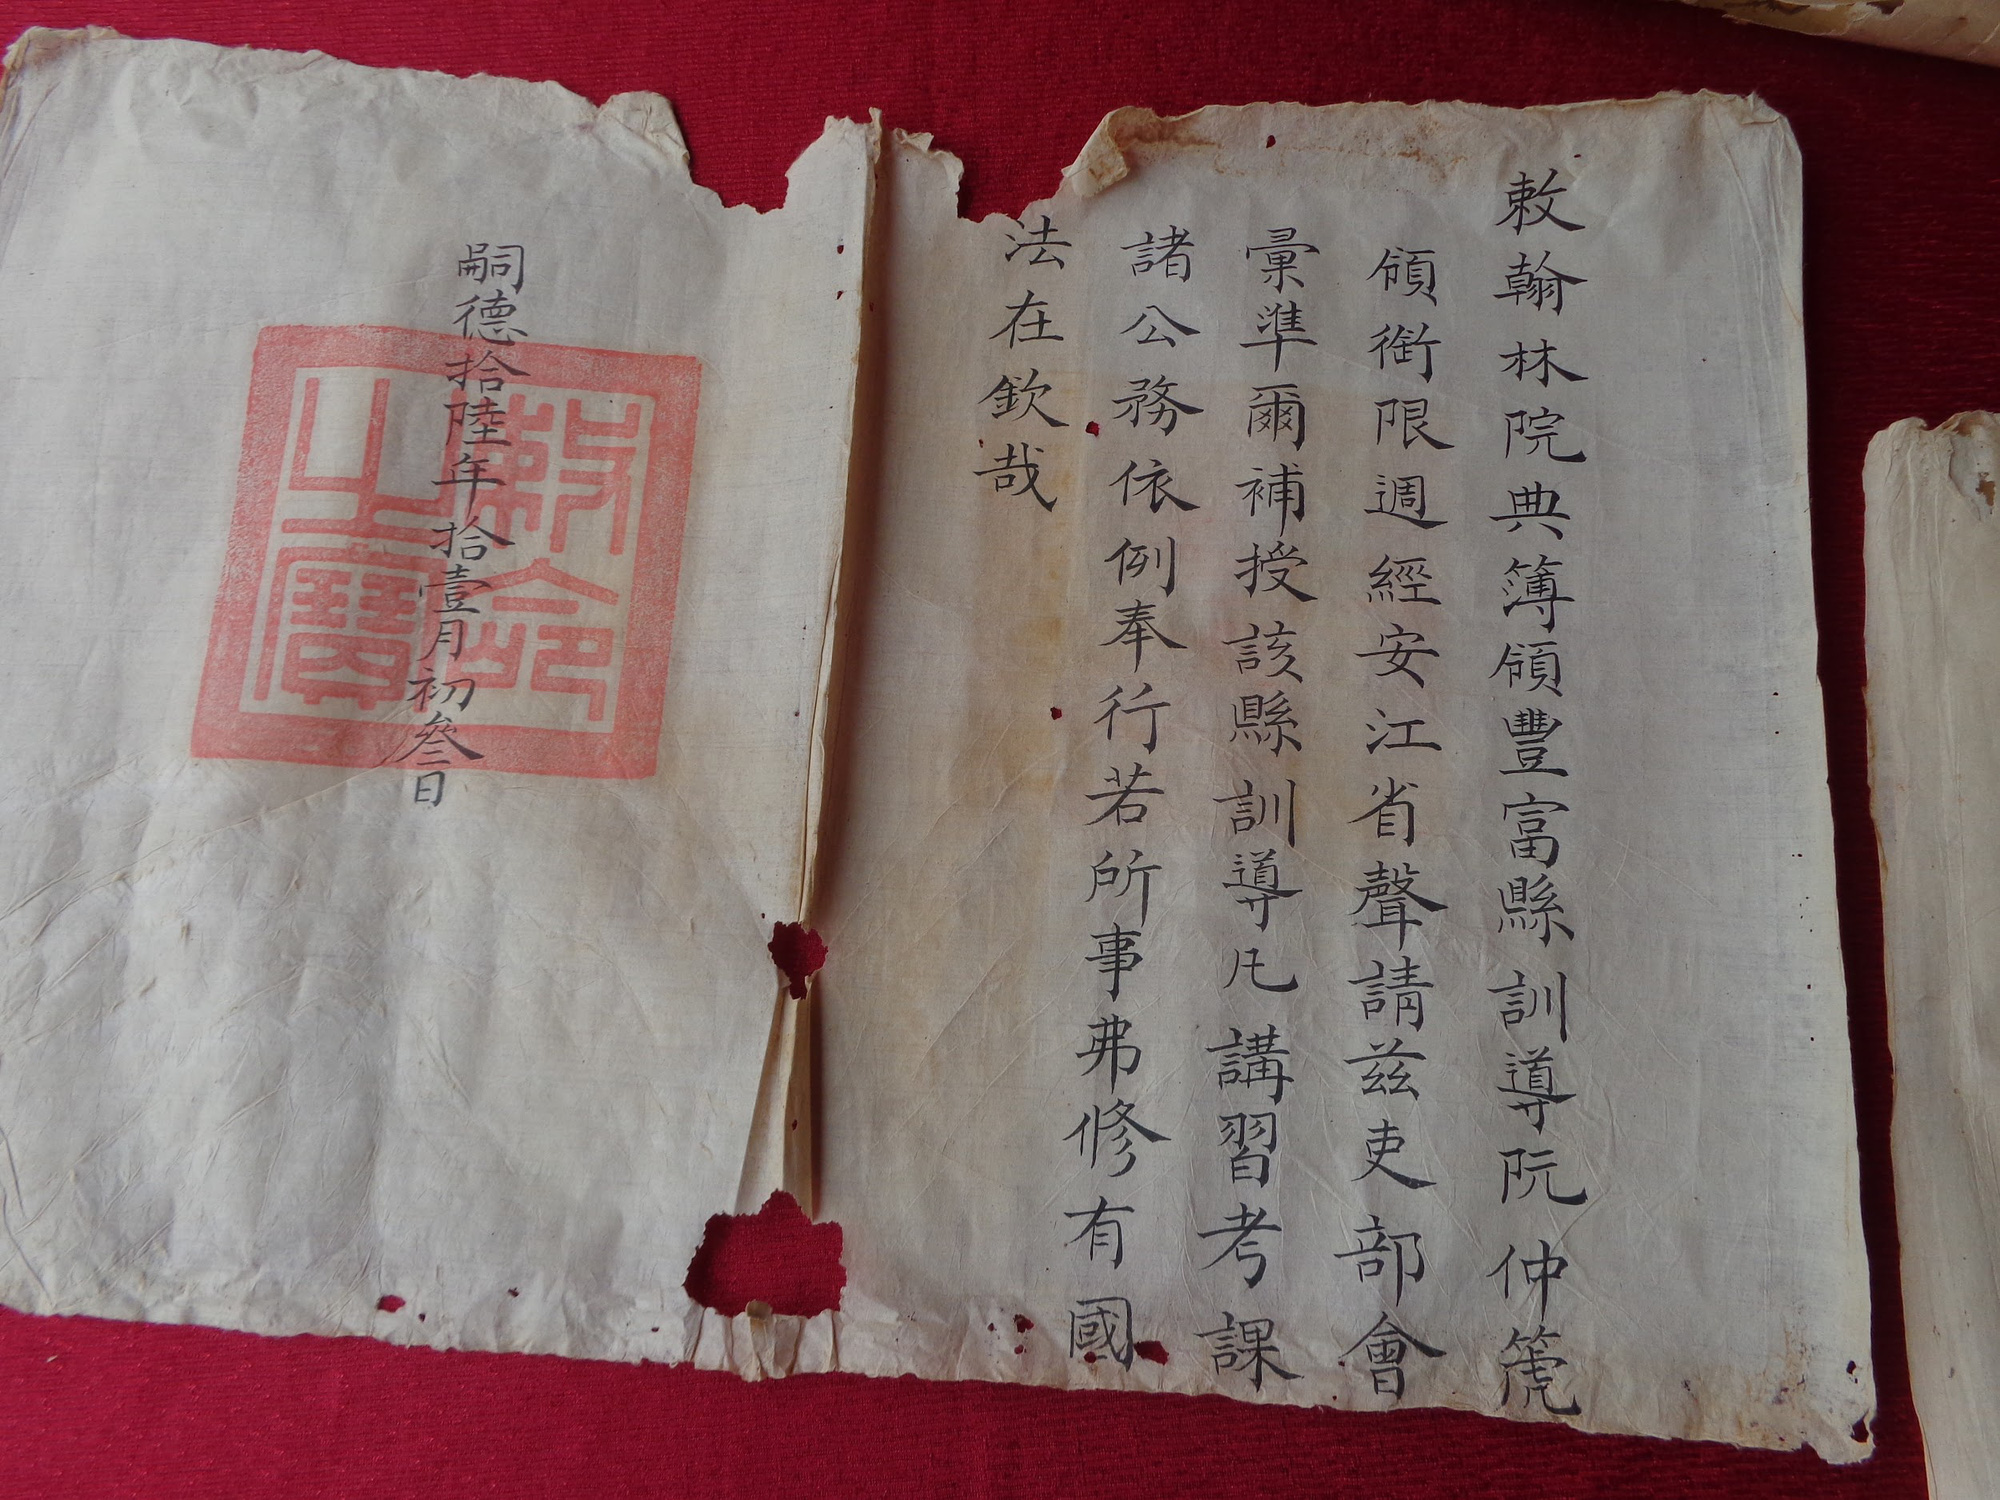 敕翰林院典簿領豐富縣訓導阮仲箎
領銜限週經安江省聲請兹吏部會
彙準爾補授該縣訓導凡講習考課
諸公務依例奉行若所事弗修有國
法在欽哉
嗣德拾陸年拾壹月初叁日
敕命之寶